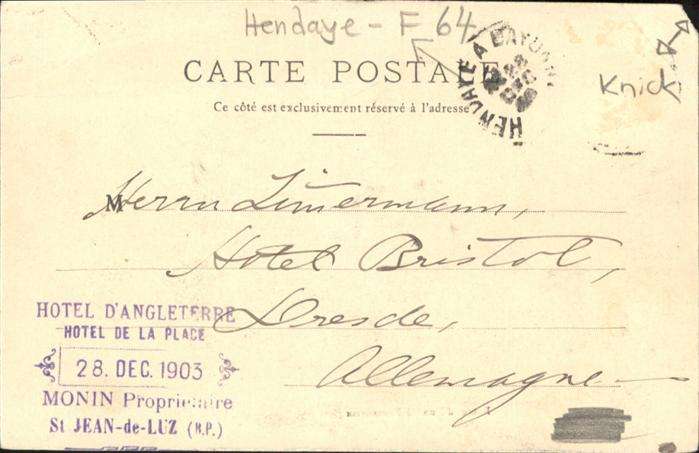 Hendaye - F 64
HENDAYE A BAYONNE
Knick
CARTE POSTALE
Ce côté est exclusivement réservé à l'adresse
M Herrn Zimermann,
Hotel Bristol,
Dresde,
Allemagne
HOTEL D'ANGLETERRE
HOTEL DE LA PLACE
28. DEC. 1903
MONIN Propriétaire
St JEAN-de-LUZ (B.P.)